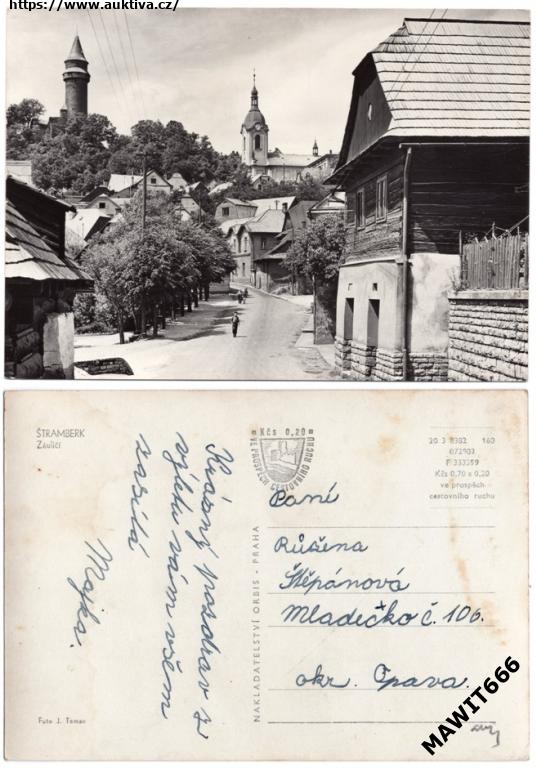 https://www.auktiva.cz/
ŠTRAMBERK
Záuličí
Krásný pozdrav z
výletu vám všem
zasílá
Majka.
Foto J. Toman
NAKLADATELSTVÍ ORBIS - PRAHA
Kčs 0,20
VE PROSPĚCH CESTOVNÍHO RUCHU
Kčs 0,70 + 0,20
ve prospěch
cestovního ruchu
Paní
Růžena
Štěpánová
Mladečko č. 106.
okr. Opava.
MAWIT666